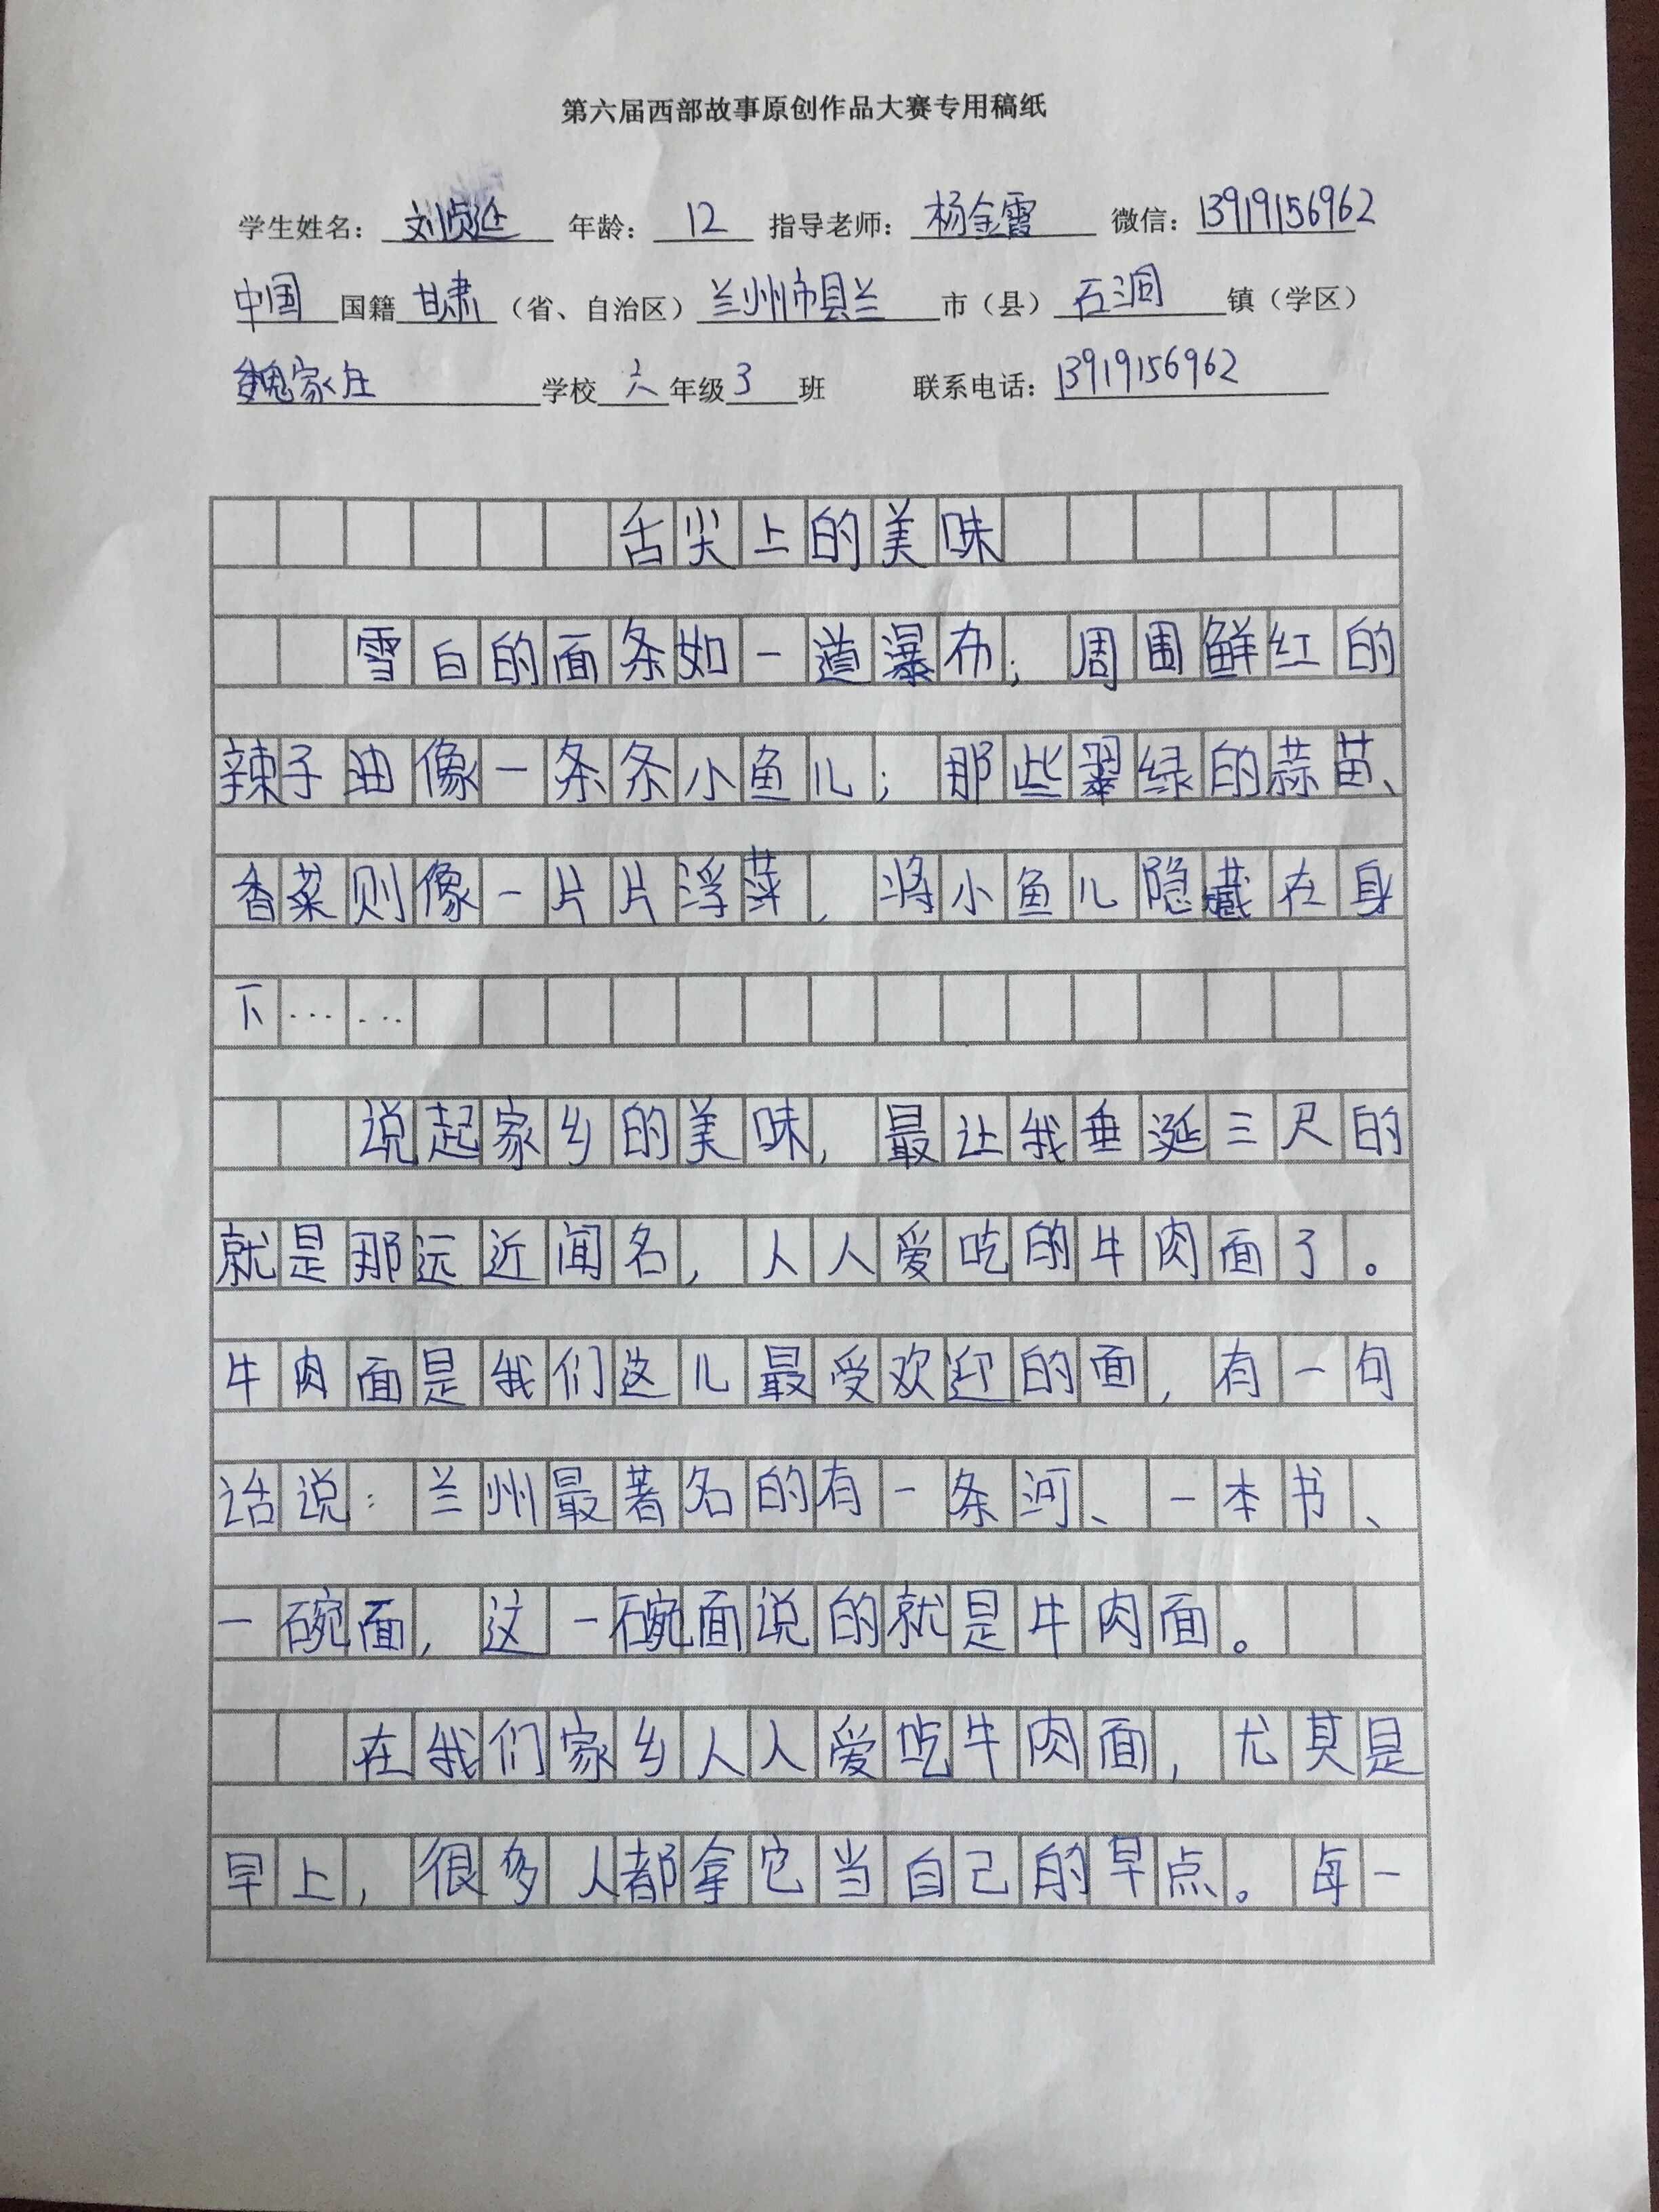 第六届西部故事原创作品大赛专用稿纸
学生姓名：刘贞延 年龄：12 指导老师：杨金霞 微信：13919156962
中国国籍甘肃（省、自治区）兰州市县兰市（县）石洞镇（学区）
魏家庄学校六年级3班 联系电话：13919156962
舌尖上的美味
雪白的面条如一道瀑布；周围鲜红的
辣子油像一条条小鱼儿；那些翠绿的蒜苗、
香菜则像一片片浮萍，将小鱼儿隐藏在身
下……
说起家乡的美味，最让我垂涎三尺的
就是那远近闻名，人人爱吃的牛肉面了。
牛肉面是我们这儿最受欢迎的面，有一句
话说：兰州最著名的有一条河、一本书、
一碗面，这一碗面说的就是牛肉面。
在我们家乡人人爱吃牛肉面，尤其是
早上，很多人都拿它当自己的早点。每一